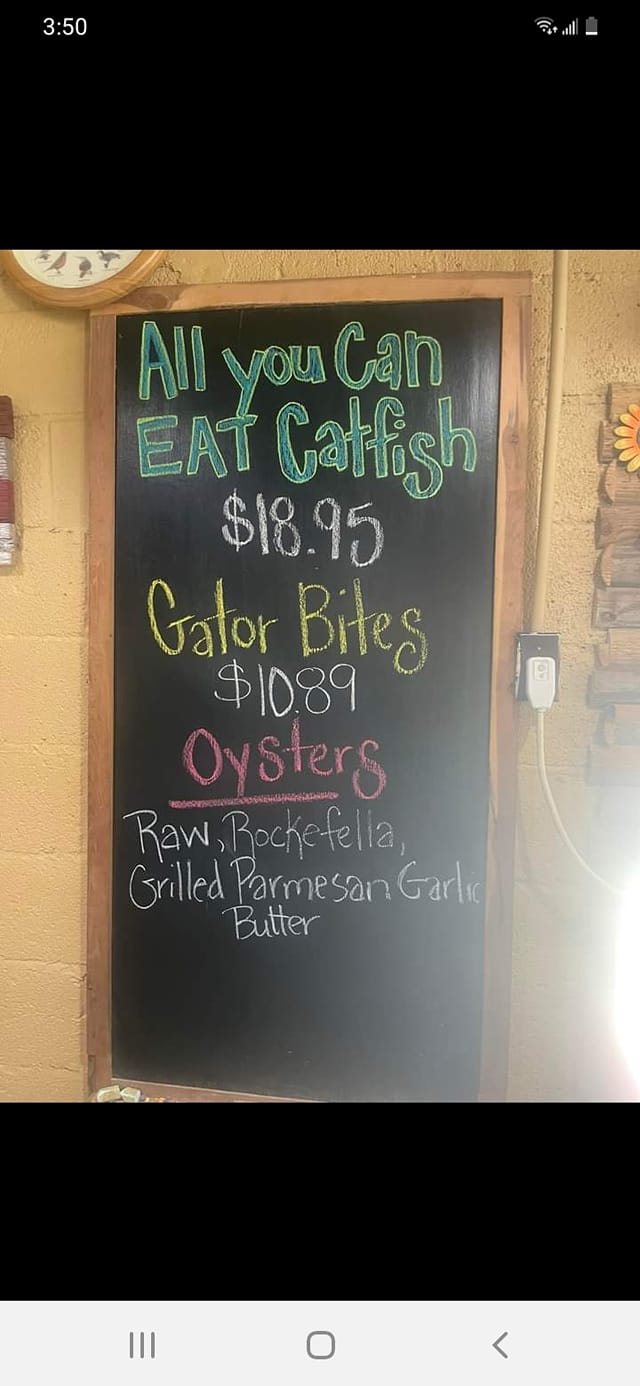 3:50
All you Can
EAT Catfish
$18.95
Gator Bites
$10.89
Oysters
Raw, Rockefella,
Grilled Parmesan Garlic
Butter